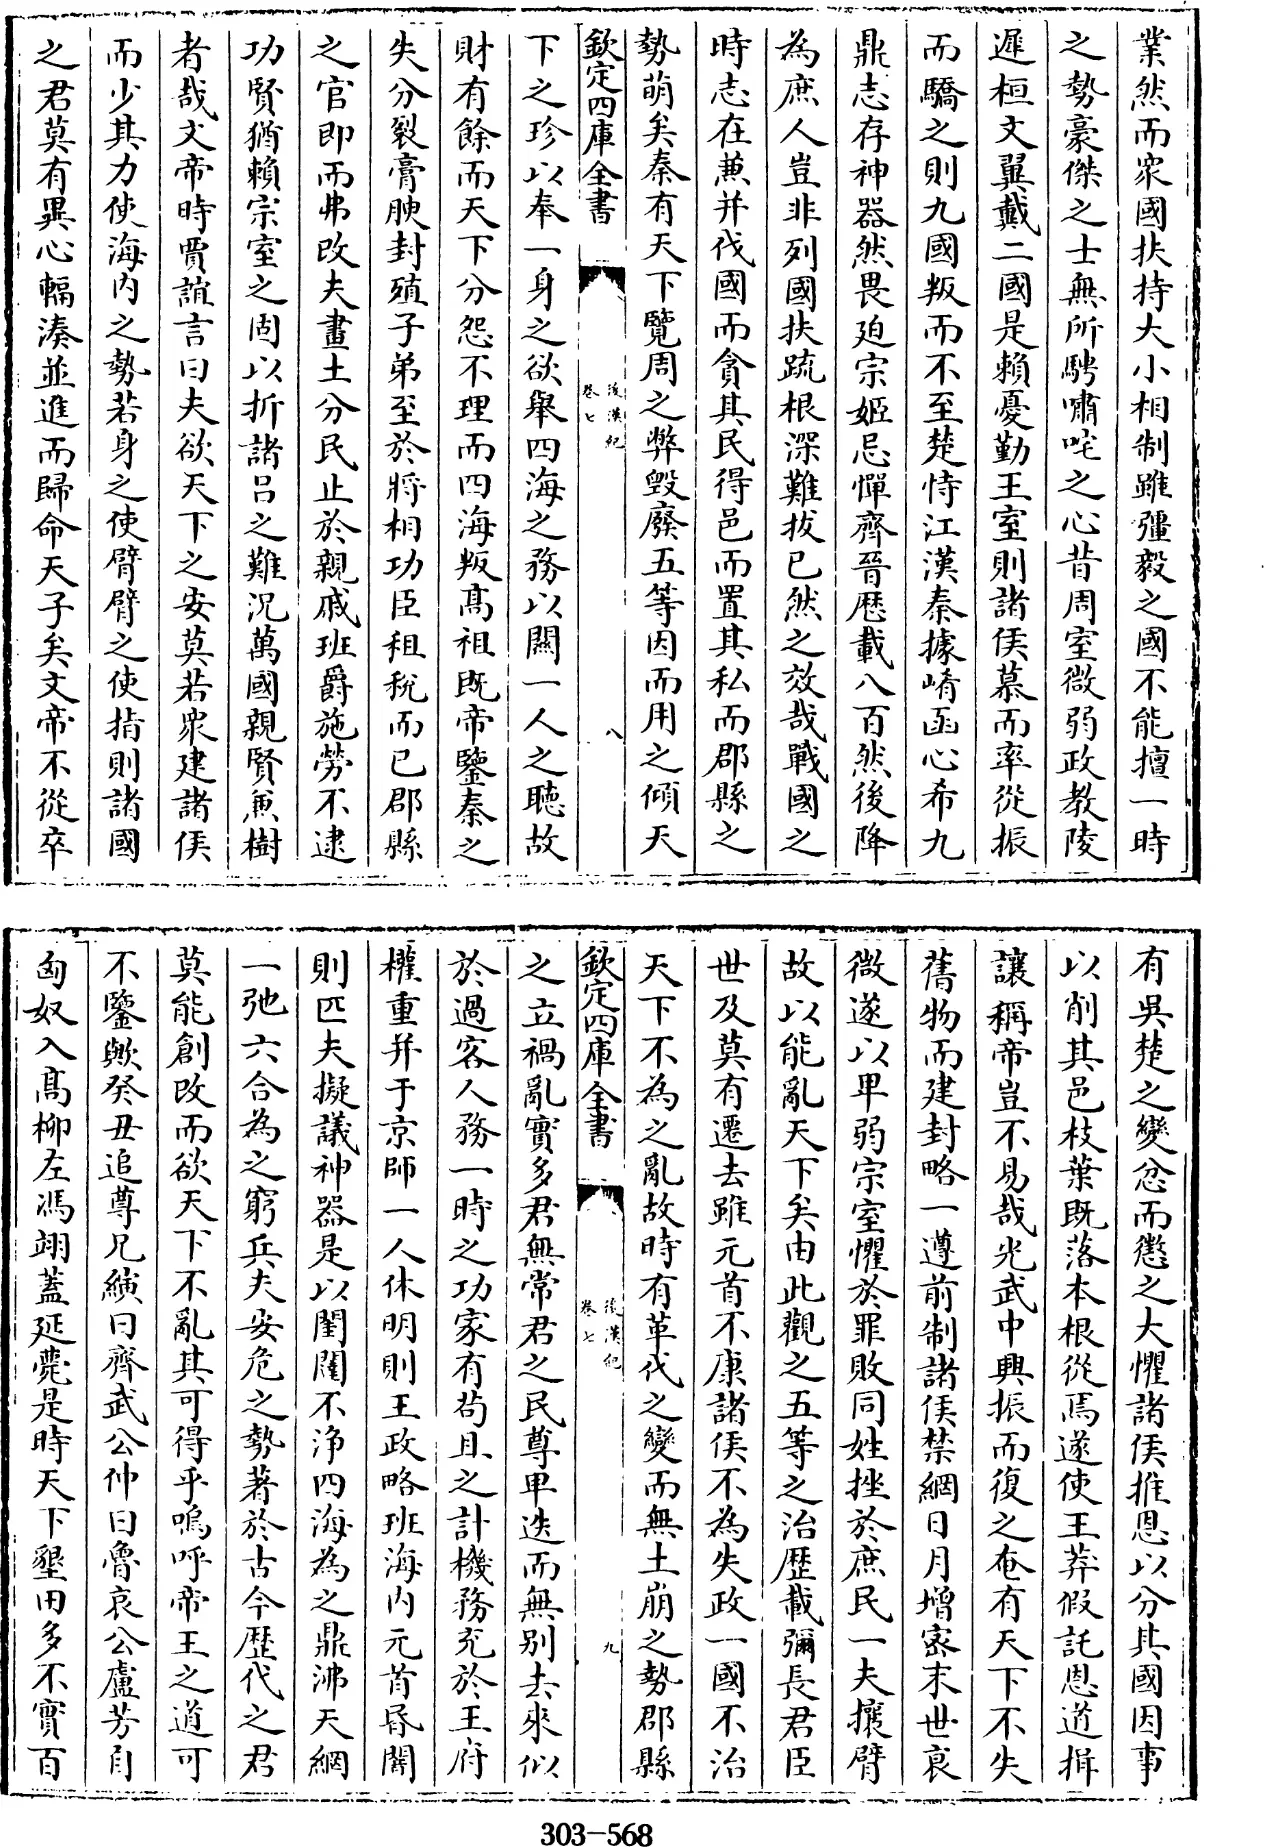 業然而衆國扶持大小相制雖彊毅之國不能擅一時
之勢豪傑之士無所騁嘯咤之心昔周室微弱政教陵
遲桓文翼戴二國是賴憂勤王室則諸侯慕而率從振
而驕之則九國叛而不至楚恃江漢秦據崤函心希九
鼎志存神器然畏迫宗姬忌憚齊晉歴載八百然後降
為庶人豈非列國扶疏根深難拔已然之效哉戰國之
時志在兼并伐國而貪其民得邑而置其私而郡縣之
勢萌矣秦有天下覽周之弊毀廢五等因而用之傾天
欽定四庫全書
後漢紀
卷七
八
下之珍以奉一身之欲舉四海之務以關一人之聽故
財有餘而天下分怨不理而四海叛髙祖既帝鑒秦之
失分裂膏腴封殖子弟至於將相功臣租稅而已郡縣
之官即而弗改夫畫土分民止於親戚班爵施勞不逮
功賢猶賴宗室之固以折諸呂之難況萬國親賢兼樹
者哉文帝時賈誼言曰夫欲天下之安莫若衆建諸侯
而少其力使海内之勢若身之使臂臂之使指則諸國
之君莫有異心輻湊並進而歸命天子矣文帝不從卒
有吳楚之變忿而懲之大懼諸侯推恩以分其國因事
以削其邑枝葉既落本根從焉遂使王莽假託恩道揖
讓稱帝豈不易哉光武中興振而復之奄有天下不失
舊物而建封略一遵前制諸侯禁網日月增密末世衰
微遂以卑弱宗室懼於罪敗同姓挫於庶民一夫攘臂
故以能亂天下矣由此觀之五等之治歴載彌長君臣
世及莫有遷去雖元首不康諸侯不為失政一國不治
天下不為之亂故時有革代之變而無土崩之勢郡縣
欽定四庫全書
後漢紀
卷七
九
之立禍亂實多君無常君之民尊卑迭而無别去來似
於過客人務一時之功家有茍且之計機務充於王府
權重并于京師一人休明則王政略班海内元首昏闇
則匹夫擬議神器是以閨闥不浄四海為之鼎沸天網
一弛六合為之窮兵夫安危之勢著於古今歴代之君
莫能創改而欲天下不亂其可得乎嗚呼帝王之道可
不鑒歟癸丑追尊兄縯曰齊武公仲曰魯哀公盧芳自
匈奴入髙柳左馮翊蓋延薨是時天下墾田多不實百
303-568